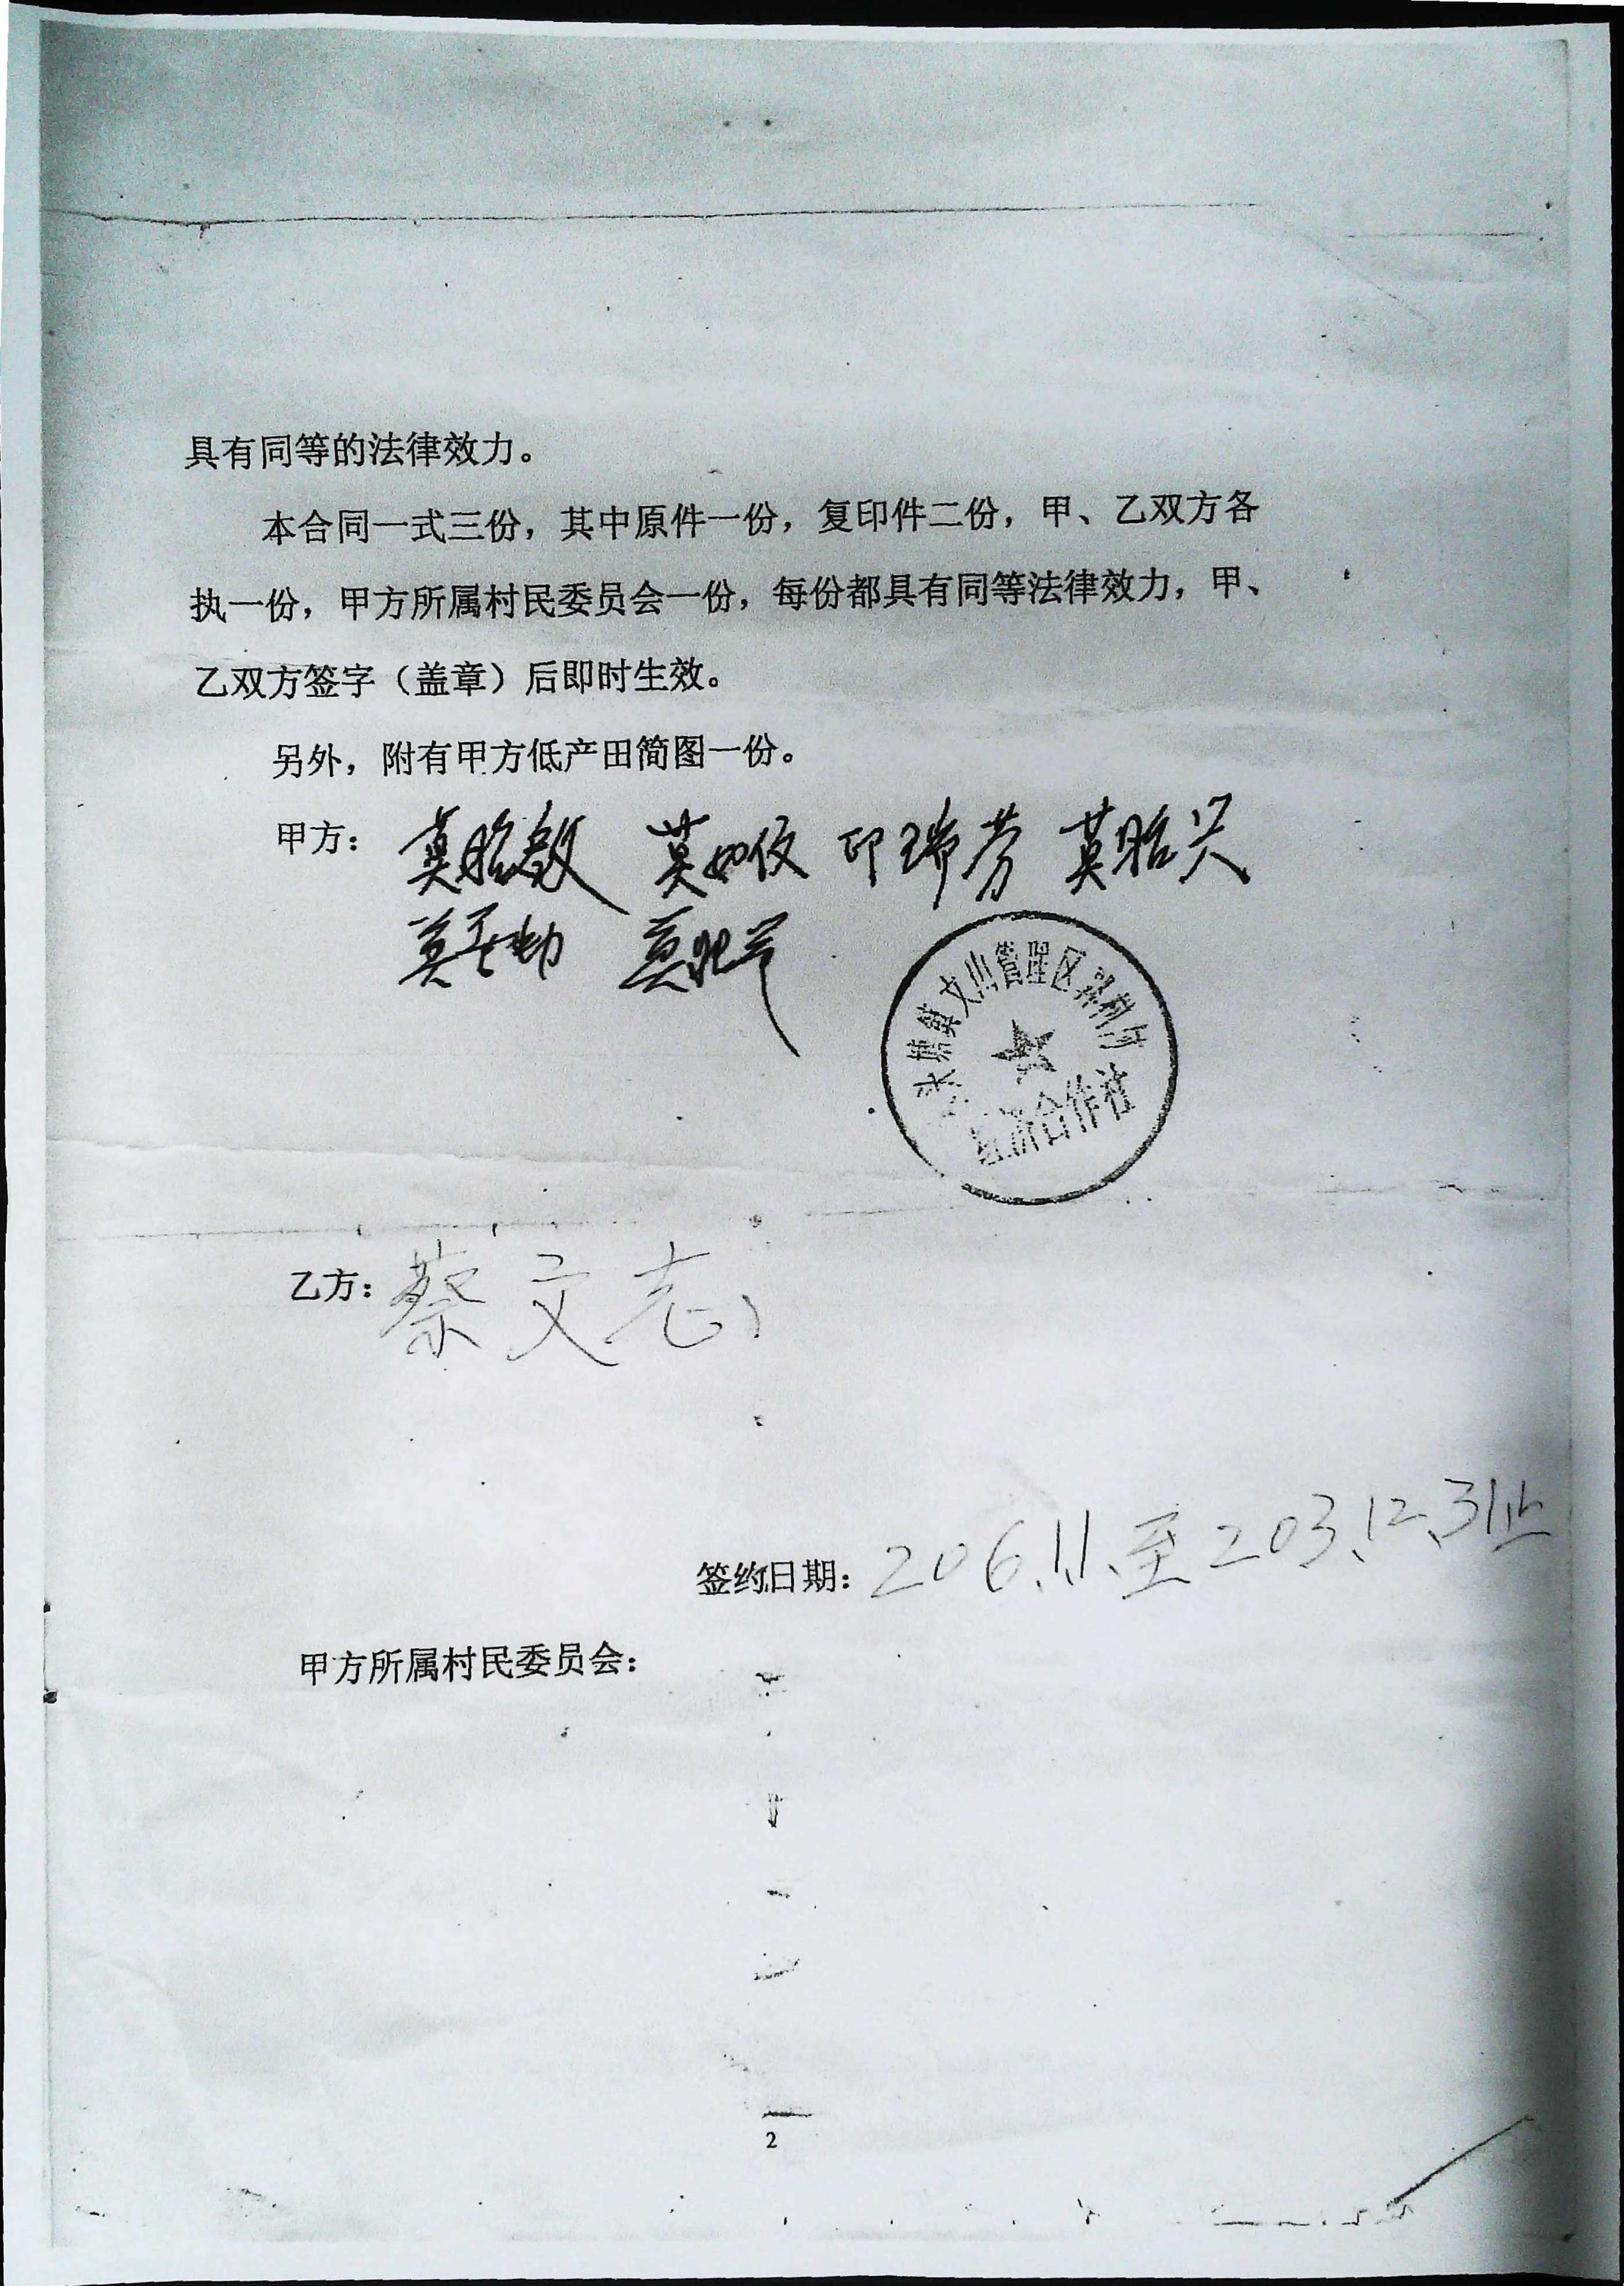 具有同等的法律效力。
本合同一式三份，其中原件一份，复印件二份，甲、乙双方各
执一份，甲方所属村民委员会一份，每份都具有同等法律效力，甲、
乙双方签字（盖章）后即时生效。
另外，附有甲方低产田简图一份。
甲方： 莫胎敏 莫如仅 印瑞芳 莫胎兴
莫
管理区
合作社
乙方：蔡文志
签约日期：206.1.1.至203.12.31止
甲方所属村民委员会：
2